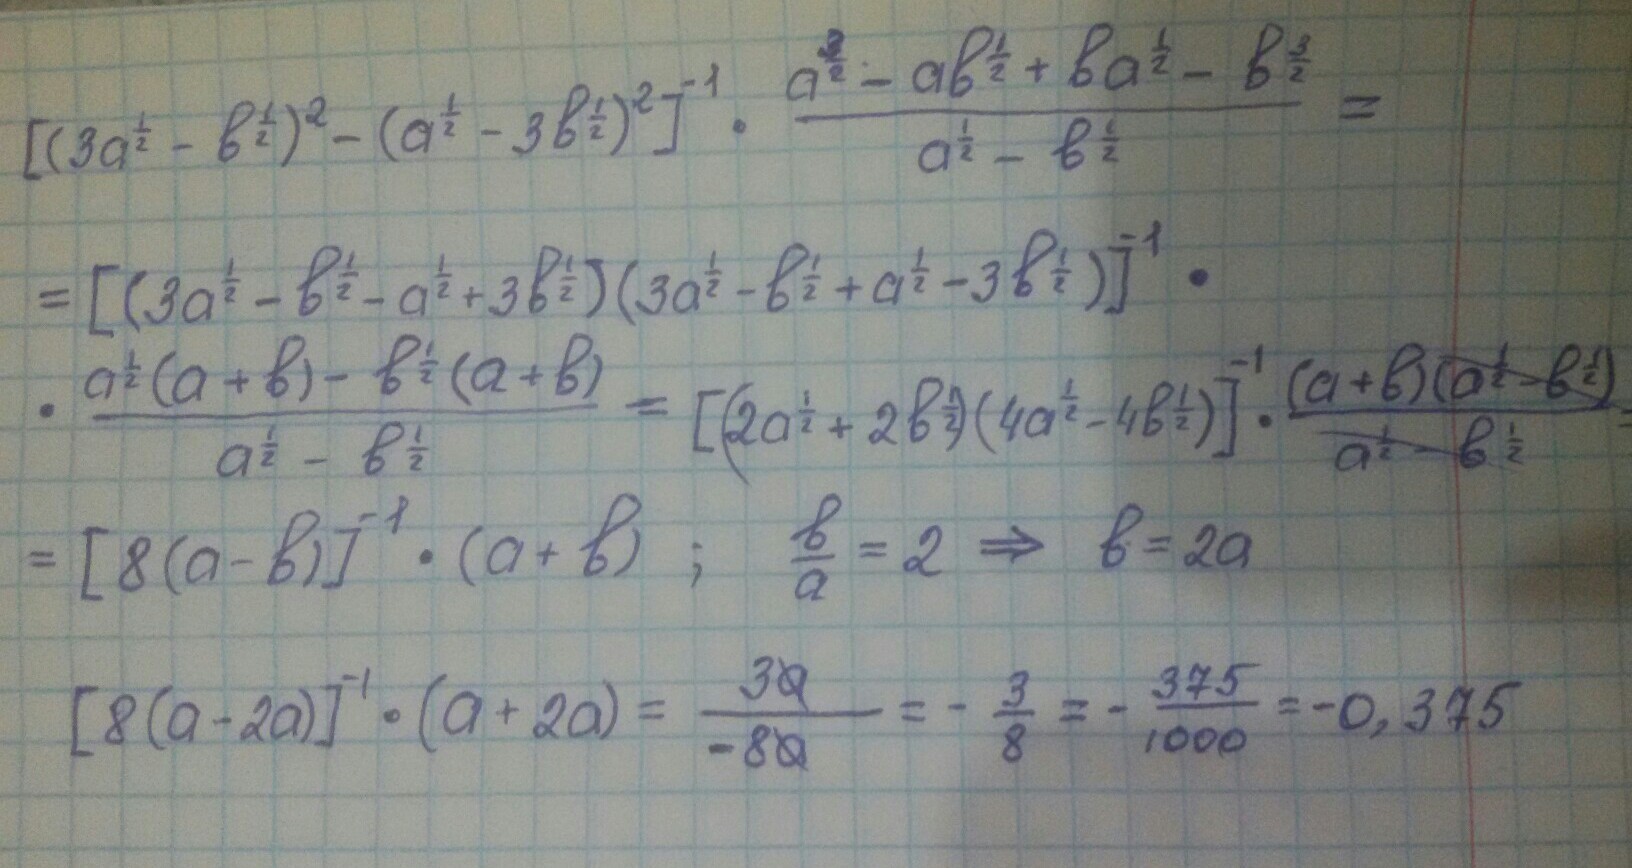 [(3a^½ - в^½)² - (a^½ - 3в^½)²]⁻¹ · (a^(3/2) - aв^½ + вa^½ - в^(3/2))/(a^½ - в^½) =
= [(3a^½ - в^½ - a^½ + 3в^½)(3a^½ - в^½ + a^½ - 3в^½)]⁻¹ ·
· (a^½(a + в) - в^½(a + в))/(a^½ - в^½) = [(2a^½ + 2в^½)(4a^½ - 4в^½)]⁻¹ · ((a + в)(a^½ - в^½))/(a^½ - в^½) =
= [8(a - в)]⁻¹ · (a + в) ; в/a = 2 ⇒ в = 2a
[8(a - 2a)]⁻¹ · (a + 2a) = 3a/(-8a) = - 3/8 = - 375/1000 = -0,375